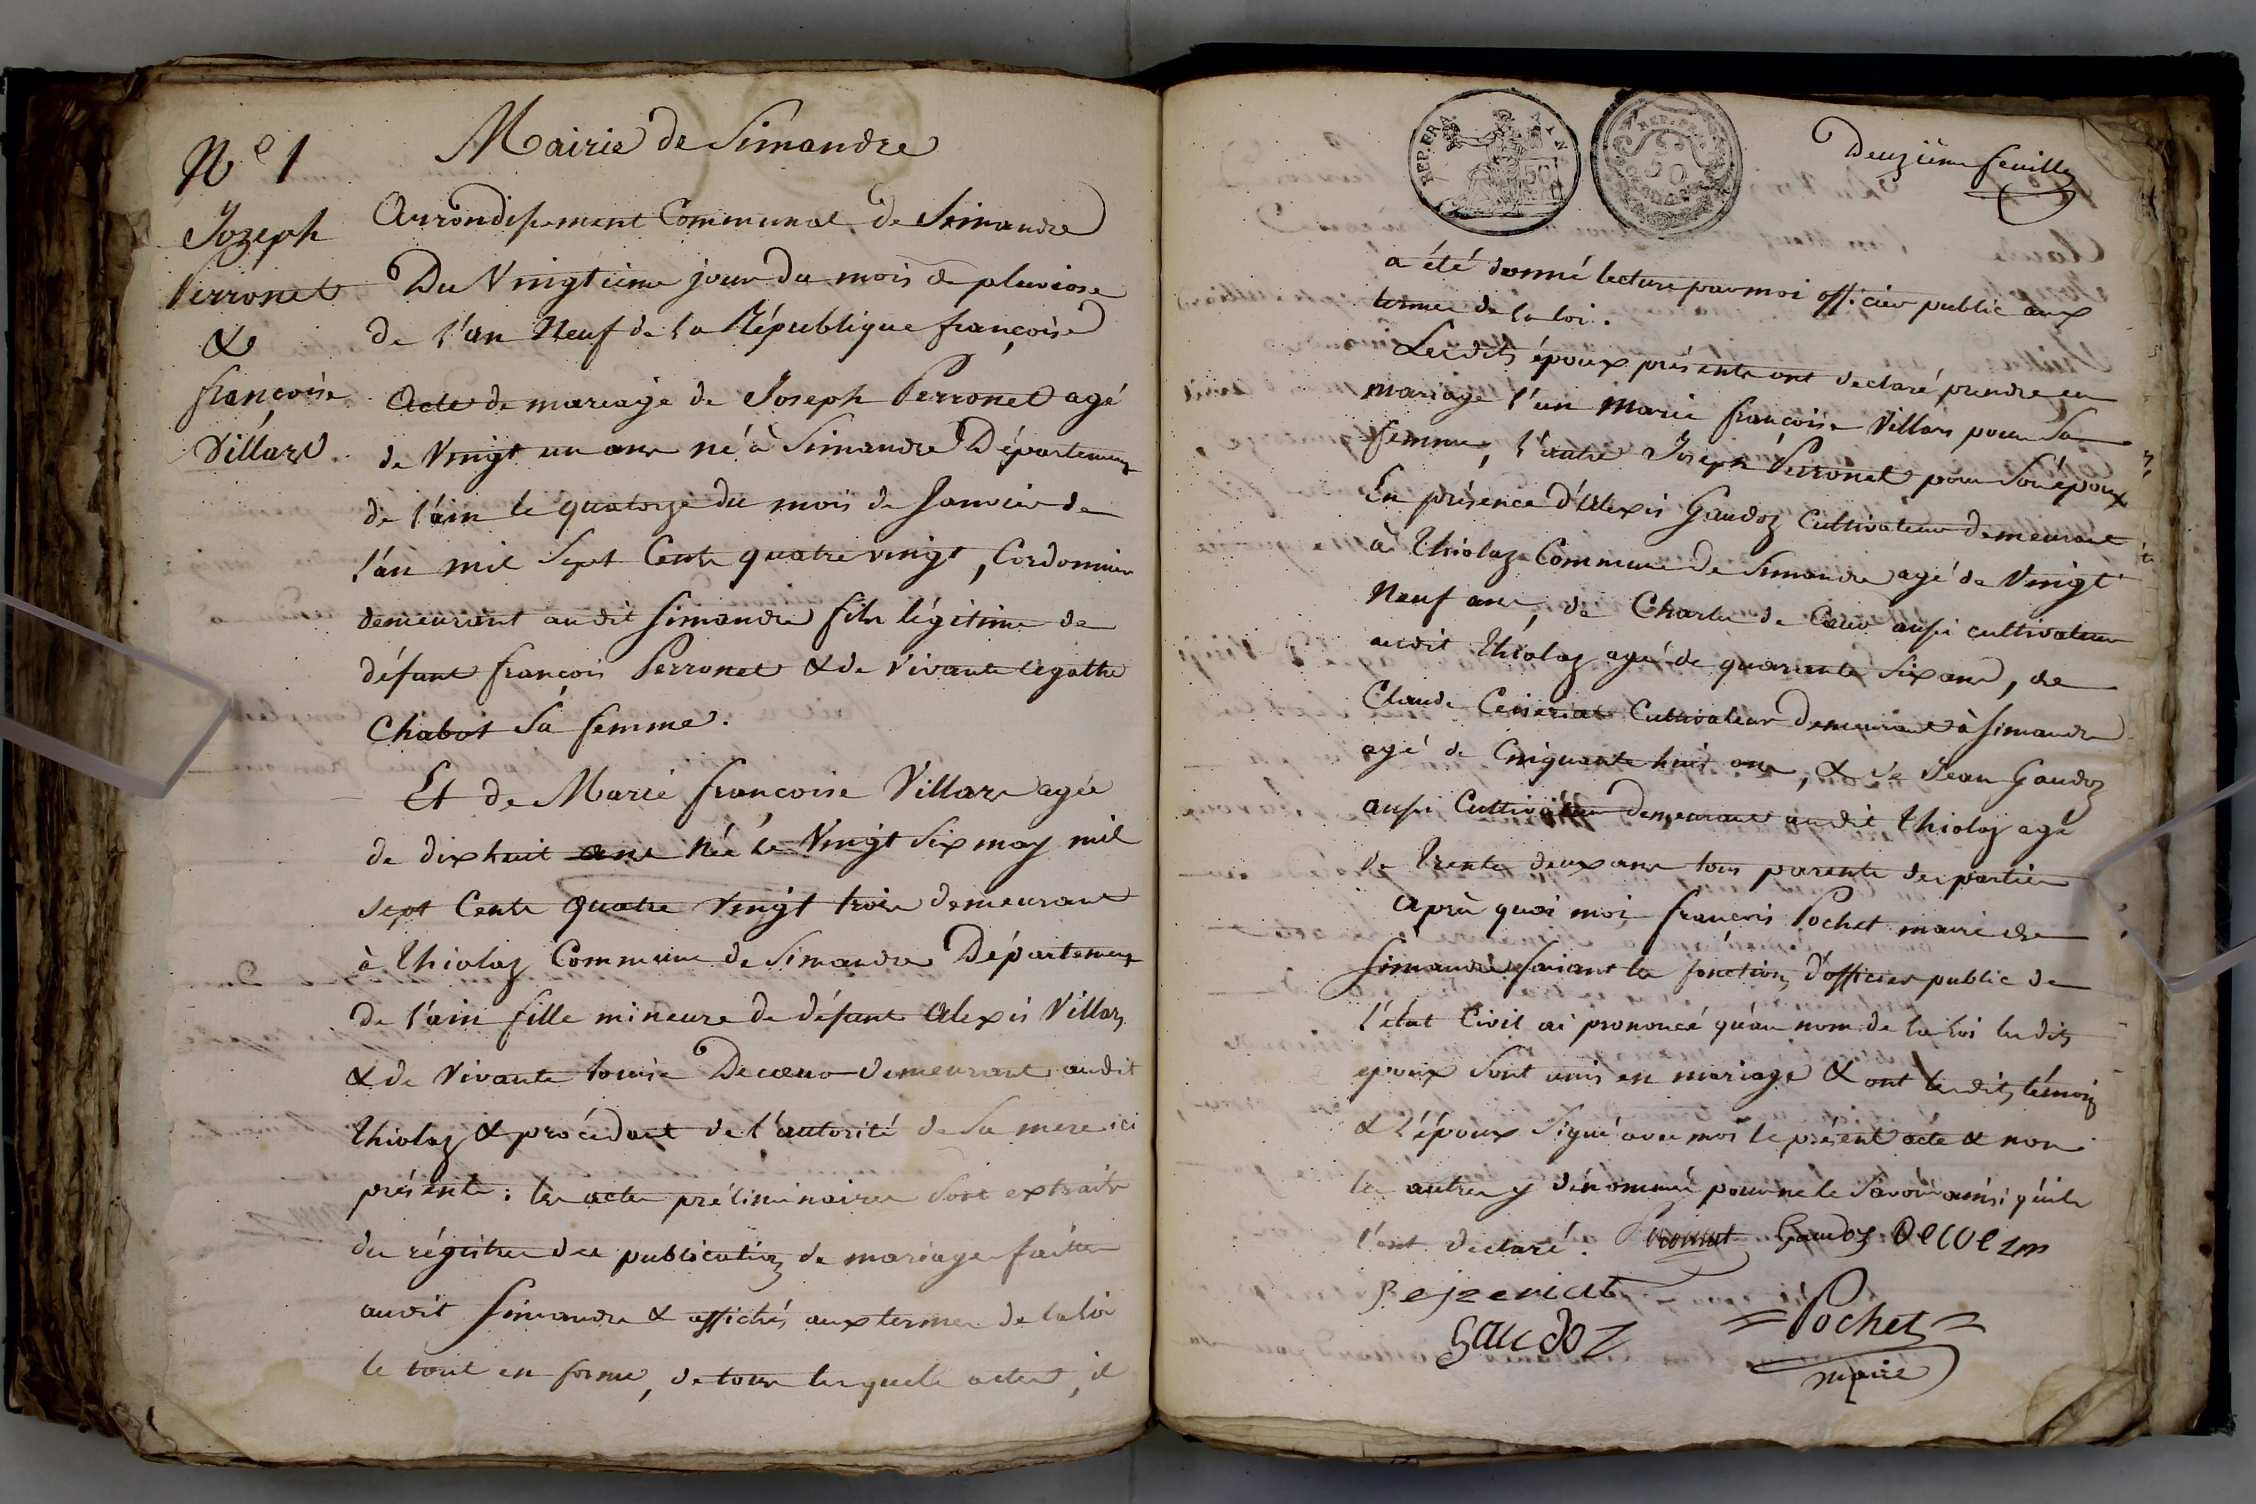 Nº 1
Mairie de Simandre
Jozeph
Perronet
&
françoise
Villars
Arrondissement Communal de Simandre
Du Vingtième jour du mois de pluviose
de l'an Neuf de la République françoise
Acte de mariage de Joseph Perronet agé
de Vingt un ans né à Simandre Département
de l'ain le quatorze du mois de Janvier de
l'an mil Sept Cents quatre vingt, Cordonnier
demeurant audit Simandre fils légitime de
défunt françois Perronet & de vivante Agathe
Chabot Sa femme.
Et de Marie françoise Villars agée
de dixhuit ans Née le Vingt Six may mil
sept Cents quatre Vingt trois demeurant
à Thiolaz Commune de Simandre Département
de l'ain fille mineure de défunt Alexis Villars
& de vivante Louise Decœur demeurant audit
Thiolaz & procédant de l'autorité de Sa mere ici
présente : les actes préliminaires Sont extraits
du régistre des publications de mariages faittes
audit Simandre & affichés aux termes de la loi
le tout en forme, de tous lesquels actes, il
REP. FRA.
50
REP. FRA.
50
Deuzième feuille
a été donné lecture par moi officier public aux
termes de la loi.
Lesdits époux présents ont declaré prendre en
mariage l'un Marie françoise Villars pour Sa
femme, l'autre Joseph Perronet pour Son époux
En présence d'Alexis Gaudoz Cultivateur demeurant
à Thiolaz Commune de Simandre agé de Vingt
Neuf ans, de Charles de Cœur aussi cultivateur
audit Thiolaz agé de quarante Six ans, de
Claude Ceiseriat Cultivateur demeurant à Simandre
agé de Cinquante huit ans, & de Jean Gaudoz
aussi Cultivateur demeurant audit Thiolaz agé
de Trente deux ans tous parents des parties
Après quoi moi françois Pochet maire de
Simandre faisant les fonctions d'officier public de
l'état Civil ai prononcé qu'au nom de la loi lesdits
epoux Sont unis en mariage & ont lesdits témoins
& l'époux Signé avec moi le présent acte & non
les autres y dénommés pour ne le Savoir ainsi qu'ils
l'ont declaré. Gaudoz
Gaudoz
= Pochet =
maire